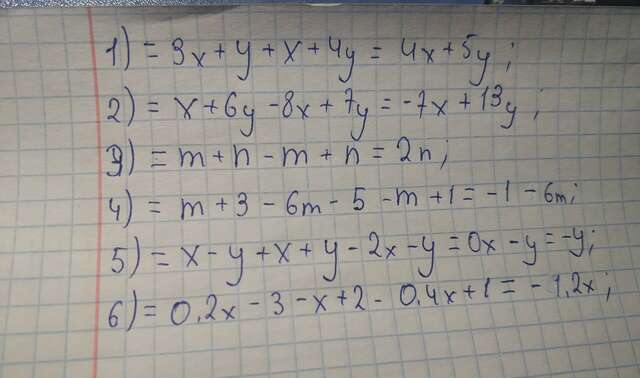 1) = 3x + y + x + 4y = 4x + 5y;
2) = x + 6y - 8x + 7y = -7x + 13y;
3) = m + n - m + n = 2n;
4) = m + 3 - 6m - 5 - m + 1 = -1 - 6m;
5) = x - y + x + y - 2x - y = 0x - y = -y;
6) = 0,2x - 3 - x + 2 - 0,4x + 1 = -1,2x;